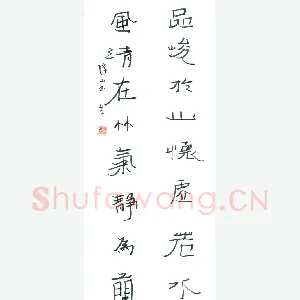 品峻於山懷虛若水
風清在林氣靜為蘭
Shufawang.CN